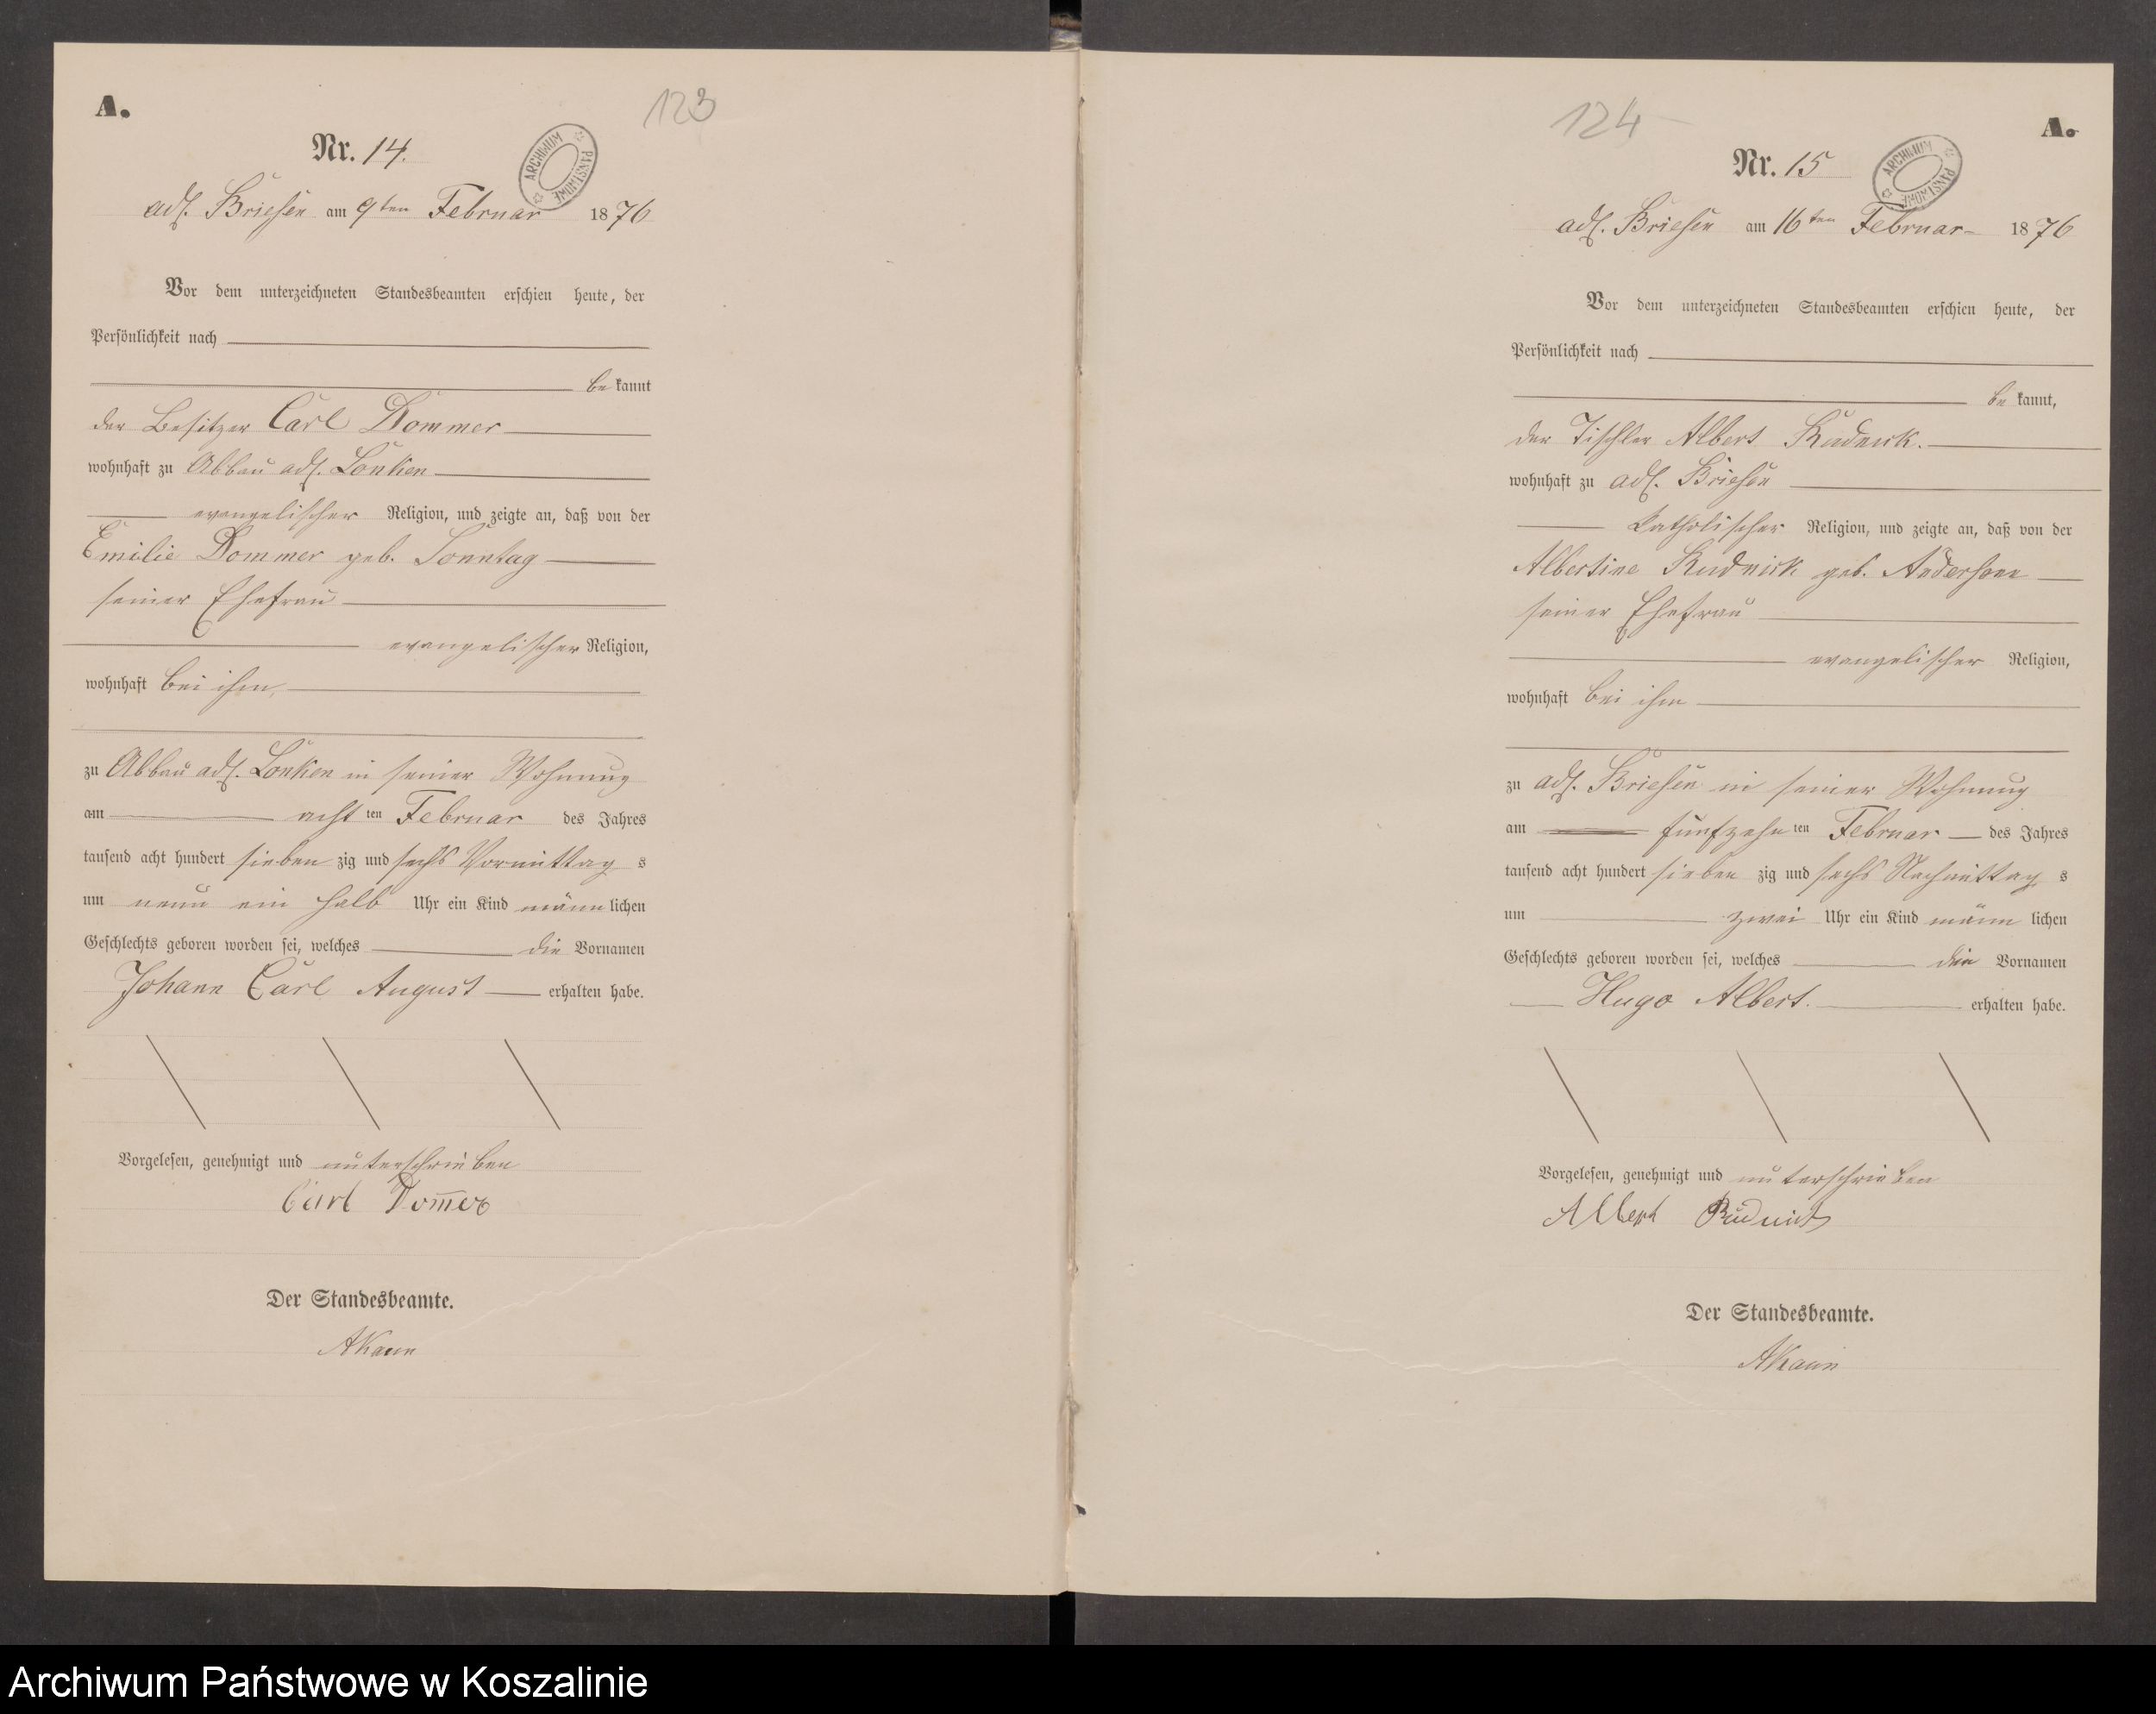 A.
123
Nr. 14.
ARCHIWUM PAŃSTWOWE
adl. Briesen am 9ten Februar 1876
Vor dem unterzeichneten Standesbeamten erschien heute, der
Persönlichkeit nach
be kannt
der Besitzer Carl Dommer
wohnhaft zu Abbau adl. Lonken
evangelischer Religion, und zeigte an, daß von der
Emilie Dommer geb. Sonntag
seiner Ehefrau
evangelischer Religion,
wohnhaft bei ihm,
zu Abbau adl. Lonken in seiner Wohnung
am acht ten Februar des Jahres
tausend acht hundert sieben zig und sechs Vormittag s
um neun ein halb Uhr ein Kind männ lichen
Geschlechts geboren worden sei, welches die Vornamen
Johann Carl August erhalten habe.
Vorgelesen, genehmigt und unterschrieben
Carl Dom̅er
Der Standesbeamte.
124
A.
Nr. 15
ARCHIWUM PAŃSTWOWE
adl. Briesen am 16ten Februar 1876
Vor dem unterzeichneten Standesbeamten erschien heute, der
Persönlichkeit nach
be kannt,
der Tischler Albert Rudnick.
wohnhaft zu adl. Briesen
katholischer Religion, und zeigte an, daß von der
Albertine Rudnick geb. Andersonn
seiner Ehefrau
evangelischer Religion,
wohnhaft bei ihm
zu adl. Briesen in seiner Wohnung
am fünfzehn ten Februar des Jahres
tausend acht hundert sieben zig und sechs Nachmittag s
um zwei Uhr ein Kind männ lichen
Geschlechts geboren worden sei, welches die Vornamen
Hugo Albert. erhalten habe.
Vorgelesen, genehmigt und unterschrieben
Albert Rudnick
Der Standesbeamte.
Archiwum Państwowe w Koszalinie